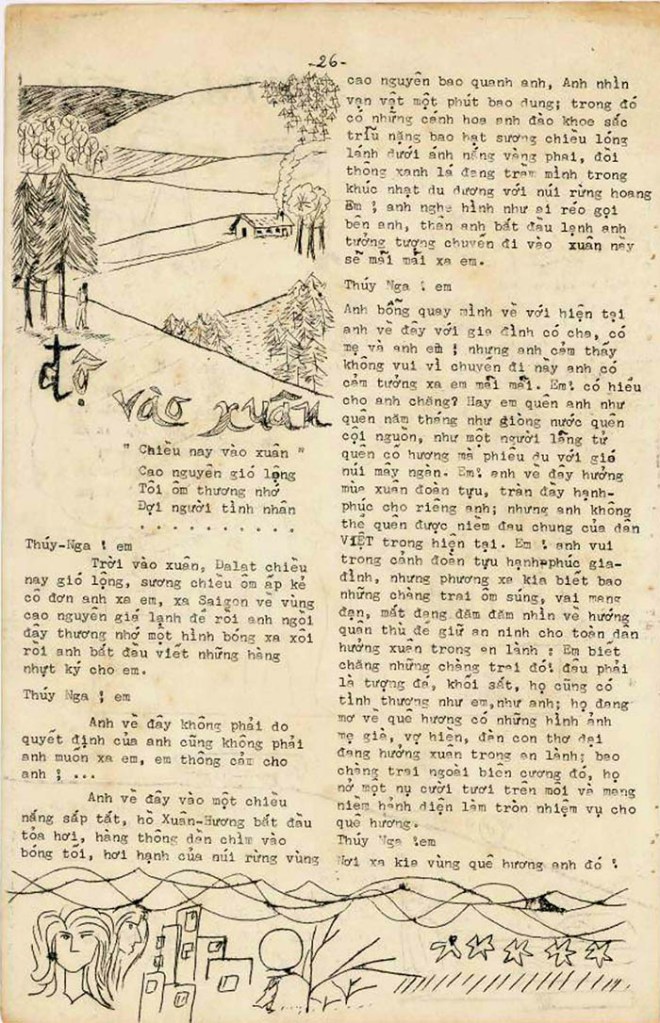 -26-
độ vào xuân
" Chiều nay vào xuân "
Cao nguyên gió lộng
Tôi ôm thương nhớ
Đợi người tình nhân
. . . . . . . . . .
Thúy-Nga ! em
Trời vào xuân, Dalat chiều
nay gió lộng, sương chiều ôm ấp kẻ
cô đơn anh xa em, xa Saigon về vùng
cao nguyên giá lạnh để rồi anh ngồi
đây thương nhớ một hình bóng xa xôi
rồi anh bắt đầu viết những hàng
nhựt ký cho em.
Thúy Nga ! em
Anh về đây không phải do
quyết định của anh cũng không phải
anh muốn xa em, em thông cảm cho
anh ! ...
Anh về đây vào một chiều
nắng sắp tắt, hồ Xuân-Hương bắt đầu
tỏa hơi, hàng thông dần chìm vào
bóng tối, hơi hạnh của núi rừng vùng
cao nguyên bao quanh anh, Anh nhìn
vạn vật một phút bao dung; trong đó
có những cánh hoa anh đào khoe sắc
trĩu nặng bao hạt sương chiều lóng
lánh dưới ánh nắng vàng phai, đồi
thông xanh lá đang trầm mình trong
khúc nhạt du dương với núi rừng hoang
Em ! anh nghe hình như ai réo gọi
bên anh, thân anh bắt đầu lạnh anh
tưởng tượng chuyến đi vào xuân này
sẽ mãi mãi xa em.
Thúy Nga ! em
Anh bỗng quay mình về với hiện tại
anh về đây với gia đình có cha, có
mẹ và anh em ! nhưng anh cảm thấy
không vui vì chuyến đi này anh có
cảm tưởng xa em mãi mãi. Em! có hiểu
cho anh chăng? Hay em quên anh như
quên năm tháng như giòng nước quên
cội nguồn, như một người lãng tử
quên cố hương mà phiêu du với gió
núi mây ngàn. Em! anh về đây hưởng
mùa xuân đoàn tựu, tràn đầy hạnh-
phúc cho riêng anh; nhưng anh không
thể quên được niềm đau chung của dân
VIỆT trong hiện tại. Em ! anh vui
trong cảnh đoàn tựu hạnh-phúc gia-
đình, nhưng phương xa kia biết bao
những chàng trai ôm súng, vai mang
đạn, mắt đang đăm đăm nhìn về hướng
quân thù để giữ an ninh cho toàn dân
hưởng xuân trong an lành : Em biết
chăng những chàng trai đó! đâu phải
là tượng đá, khối sắt, họ cũng có
tình thương như em,như anh; họ đang
mơ về quê hương có những hình ảnh
mẹ già, vợ hiền, đàn con thơ dại
đang hưởng xuân trong an lành; bao
chàng trai ngoài biên cương đó, họ
nở một nụ cười tươi trên môi và mang
niềm hãnh diện làm tròn nhiệm vụ cho
quê hương.
Thúy Nga !em
Nơi xa kia vùng quê hương anh đó !